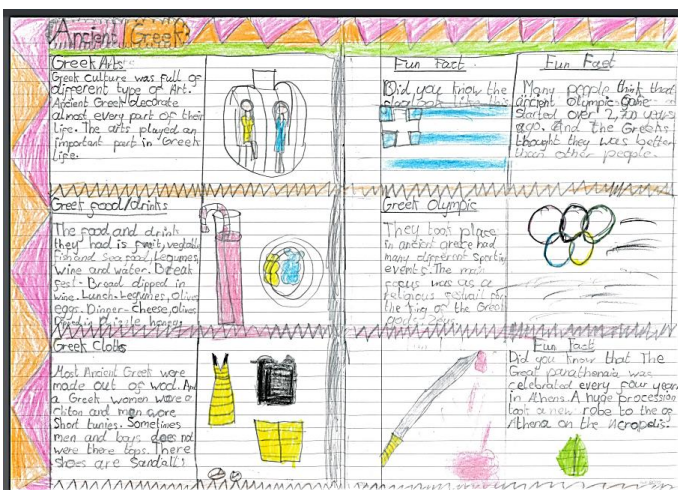 Ancient Greek
Greek Arts
Greek Culture was full of
different type of Art.
Ancient Greek decorate
almost every part of their
life. The arts played an
important part in Greek
Life.
Fun Fact
Did you know the
Fun Fact
Many people think that
ancient Olympic Game
started over 2,700 years
ago. And the Greeks
thought they was better
than other people.
Greek food/drinks
The food and drink
they had is fruity, vegtable
Fish and Sea food, Legumes,
Wine and water. Break
fest - Bread dipped in
wine. Lunch - Legumes, Olives
eggs. Dinner - Cheese, olives
Greek Olympic
They took place
in ancient greke had
many different sporting
events. The main
focus was as a
religious festivail for
the king of the Greek
Greek Cloths
Most Ancient Greek were
made out of wool. And
a Greek women wore a
chiton and men wore
Short tunics. Sometimes
men and boys does not
were there tops. There
Shoes are Sandalls
Fun fact
Did you know that The
Great panathenaia was
celebrated every four year
in Athens. A huge procession
took a new robe to the
Athena on the Acropolis.